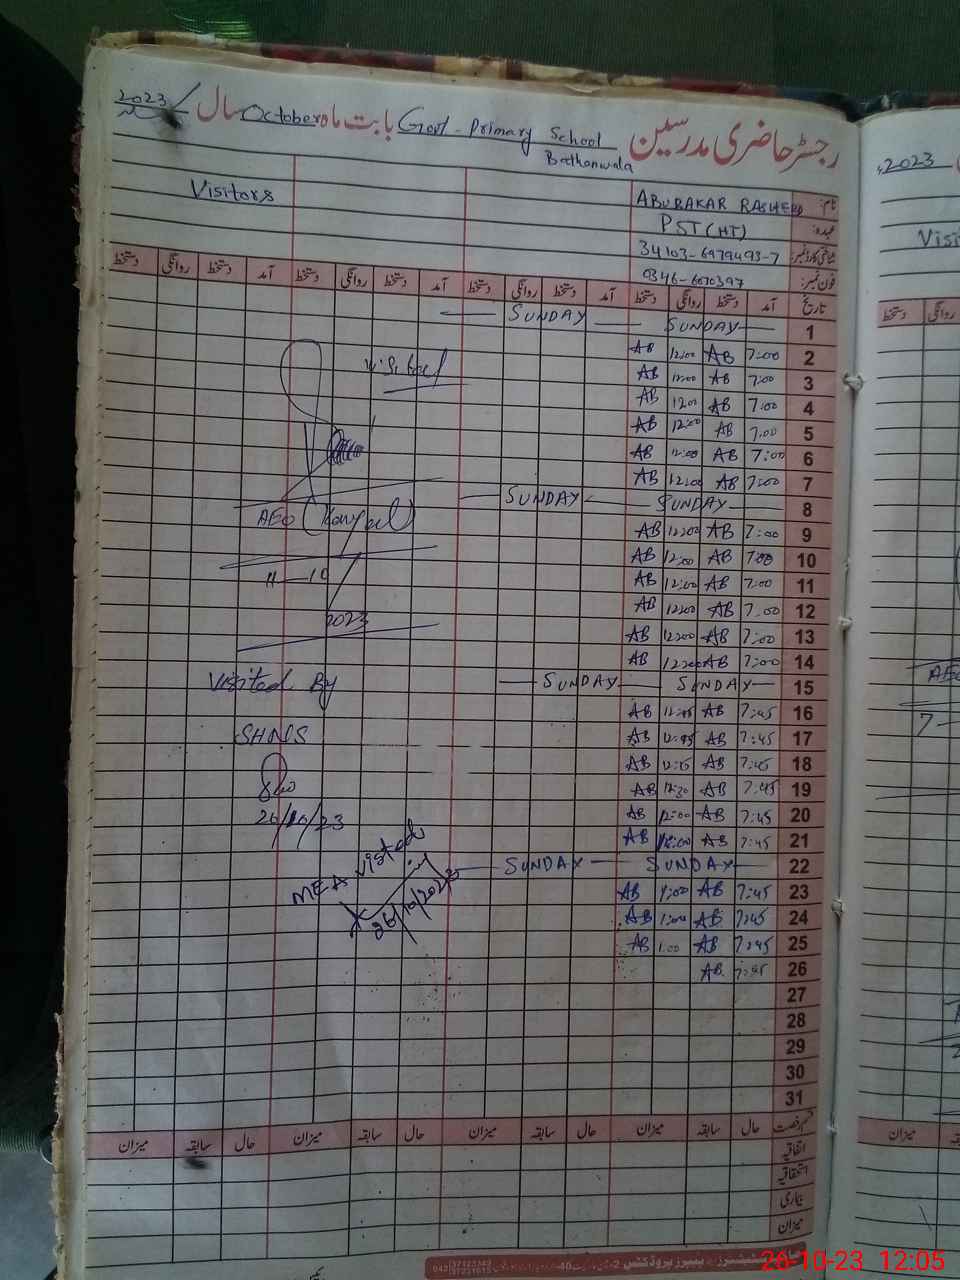 رجسٹر حاضری مدرسین Govt - Primary School بابت ماہ October سال 2023
Bathanwala
Visitors
نام: ABUBAKAR RASHEED
عہدہ: PST (HT)
شناختی کارڈ نمبر: 34103-6979493-7
فون نمبر:
تاریخ آمد دستخط روانگی دستخط آمد دستخط روانگی دستخط آمد دستخط روانگی دستخط آمد دستخط روانگی دستخط
1 SUNDAY SUNDAY
2 7:00 AB 12:00 AB
3 7:00 AB 12:00 AB
4 7:00 AB 12:00 AB
5 7:00 AB 12:00 AB
6 7:00 AB 12:00 AB
7 7:00 AB 12:00 AB
8 SUNDAY SUNDAY
9 7:00 AB 12:00 AB
10 7:00 AB 12:00 AB
11 7:00 AB 12:00 AB
12 7:00 AB 12:00 AB
13 7:00 AB 12:00 AB
14 7:00 AB 12:00 AB
15 SUNDAY SUNDAY
16 7:45 AB 12:45 AB
17 7:45 AB 12:45 AB
18 7:45 AB AB
19 7:45 AB 12:30 AB
20 7:45 AB 12:00 AB
21 7:45 AB 12:00 AB
22 SUNDAY SUNDAY
23 7:45 AB 1:00 AB
24 7:45 AB 1:00 AB
25 7:45 AB 1:00 AB
26 7:45 AB
27
28
29
30
31
Visited
AEO
11-10
2023
Visited By
SHNS
26/10/23
MEA Visted
26/10/2023
قسم رخصت حال سابقہ میزان حال سابقہ میزان حال سابقہ میزان حال سابقہ میزان
اتفاقیہ
استحقاقیہ
بیماری
میزان
2023
روانگی دستخط
میزان
26-10-23 12:05